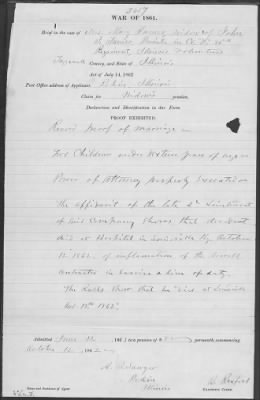 WAR OF 1861.
Brief in the case of Mary Jones widow of John
Private in Co.
Regiment Illinois Volunteers
Tazewell County, and State of Illinois
Act of July 14, 1862.
Post Office address of Applicant, Pekin Illinois
Claim for Widow's pension.
Declaration and Identification in due Form.
PROOF EXHIBITED.
Record proof of marriage
For Children under sixteen years of age
Power of Attorney properly executed
The affidavit of the late 2d Lieutenant
of said Company shows that decedent
died at Hospital in Louisville Ky October
12 1862, of inflammation of the bowels
contracted in service & line of duty.
The Rolls show that he died at Louisville
Oct. 12th 1862.
Admitted June 186 to a pension of per month, commencing
October 12, 1862
Pekin
Illinois
Name and Residence of Agent.
Examining Clerk.